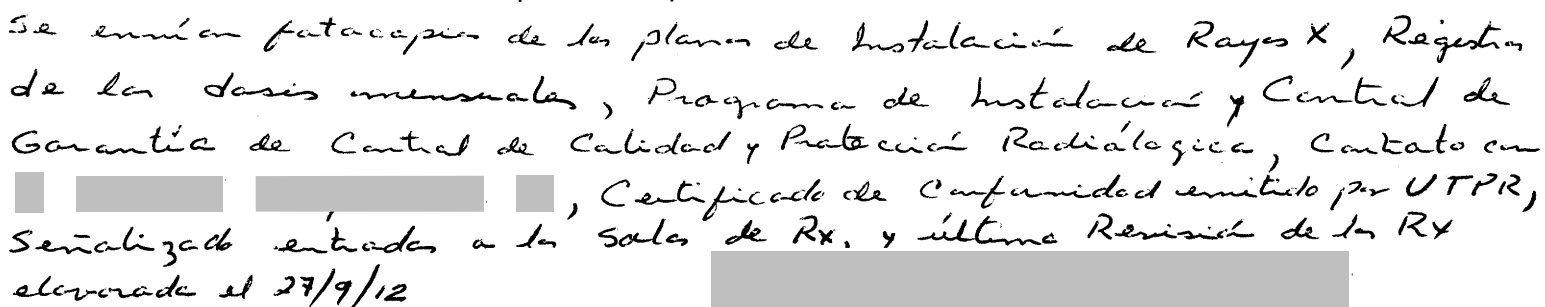 Se envían fotocopias de los planos de Instalación de Rayos X, Registros
de las dosis mensuales, Programa de Instalación y Control de
Garantía de Control de Calidad y Protección Radiológica, Contrato con
, Certificado de Conformidad emitido por UTPR,
Señalizado entradas a las Salas de Rx, y última Revisión de los RX
elavorada el 27/9/12